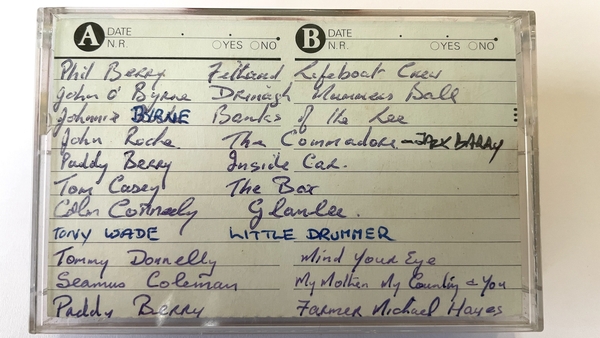 A DATE . . B DATE . .
N.R. YES NO N.R. YES NO
Phil Berry Fethard Lifeboat Crew
John O' Byrne Drinagh Mummers Ball
Johnnie BYRNE Banks of the Lee
John Roche The Commodore - JACK BARRY
Paddy Berry Inside Car.
Tom Casey The Box
Colm Connedy Glanlee.
TONY WADE LITTLE DRUMMER
Tommy Donnelly Mind Your Eye
Seamus Coleman My Mother My Country & You
Paddy Berry Farmer Michael Hayes